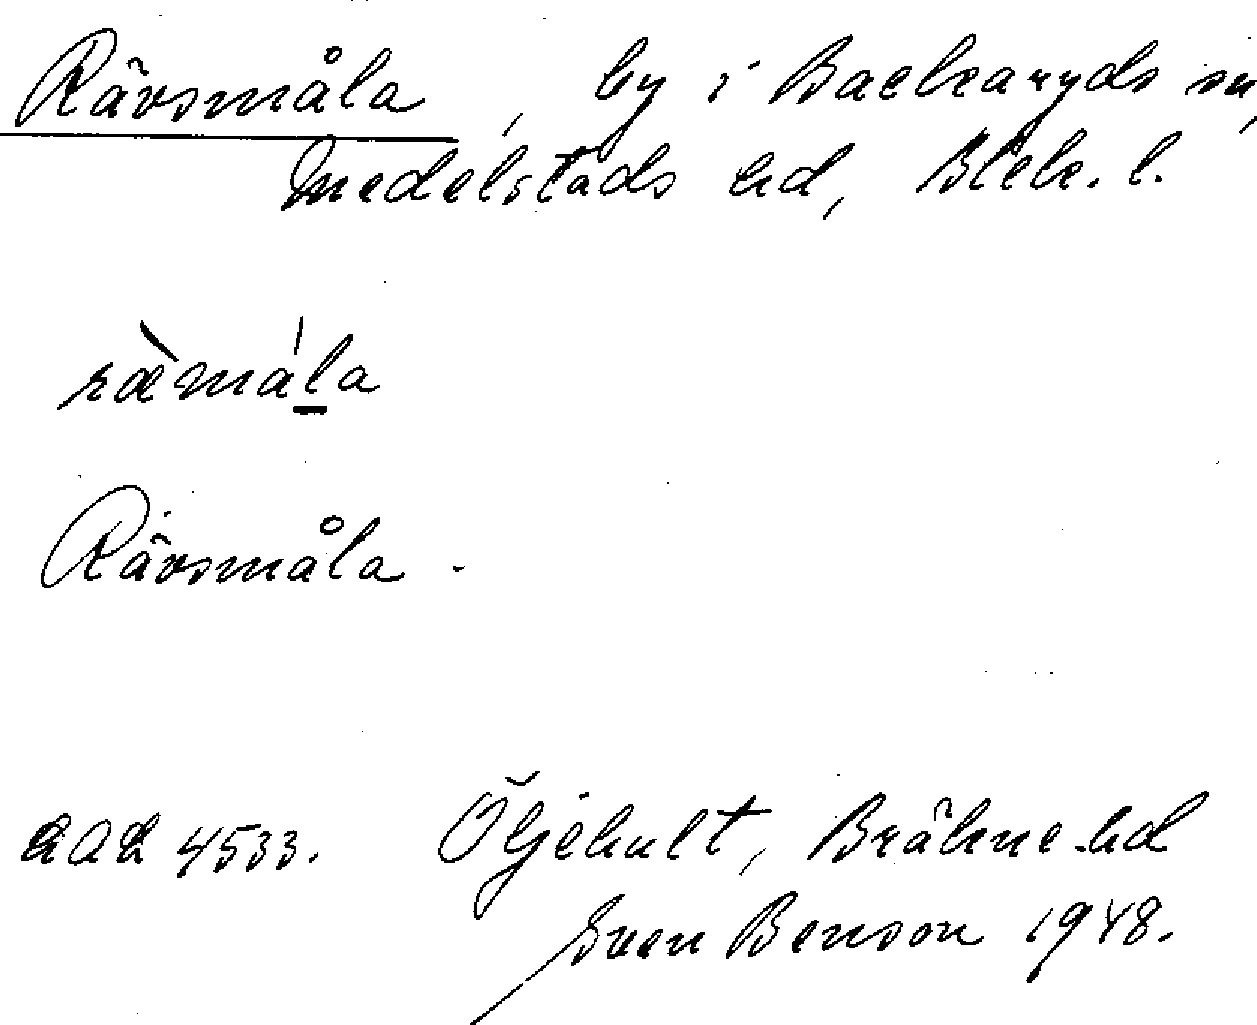 Rävsmåla, by i Backaryds sn,
Medelstads hd, Blek. l.
ràmála
Rävsmåla.
4533. Öljehult, Bräkne hd
Sven Benson 1948.